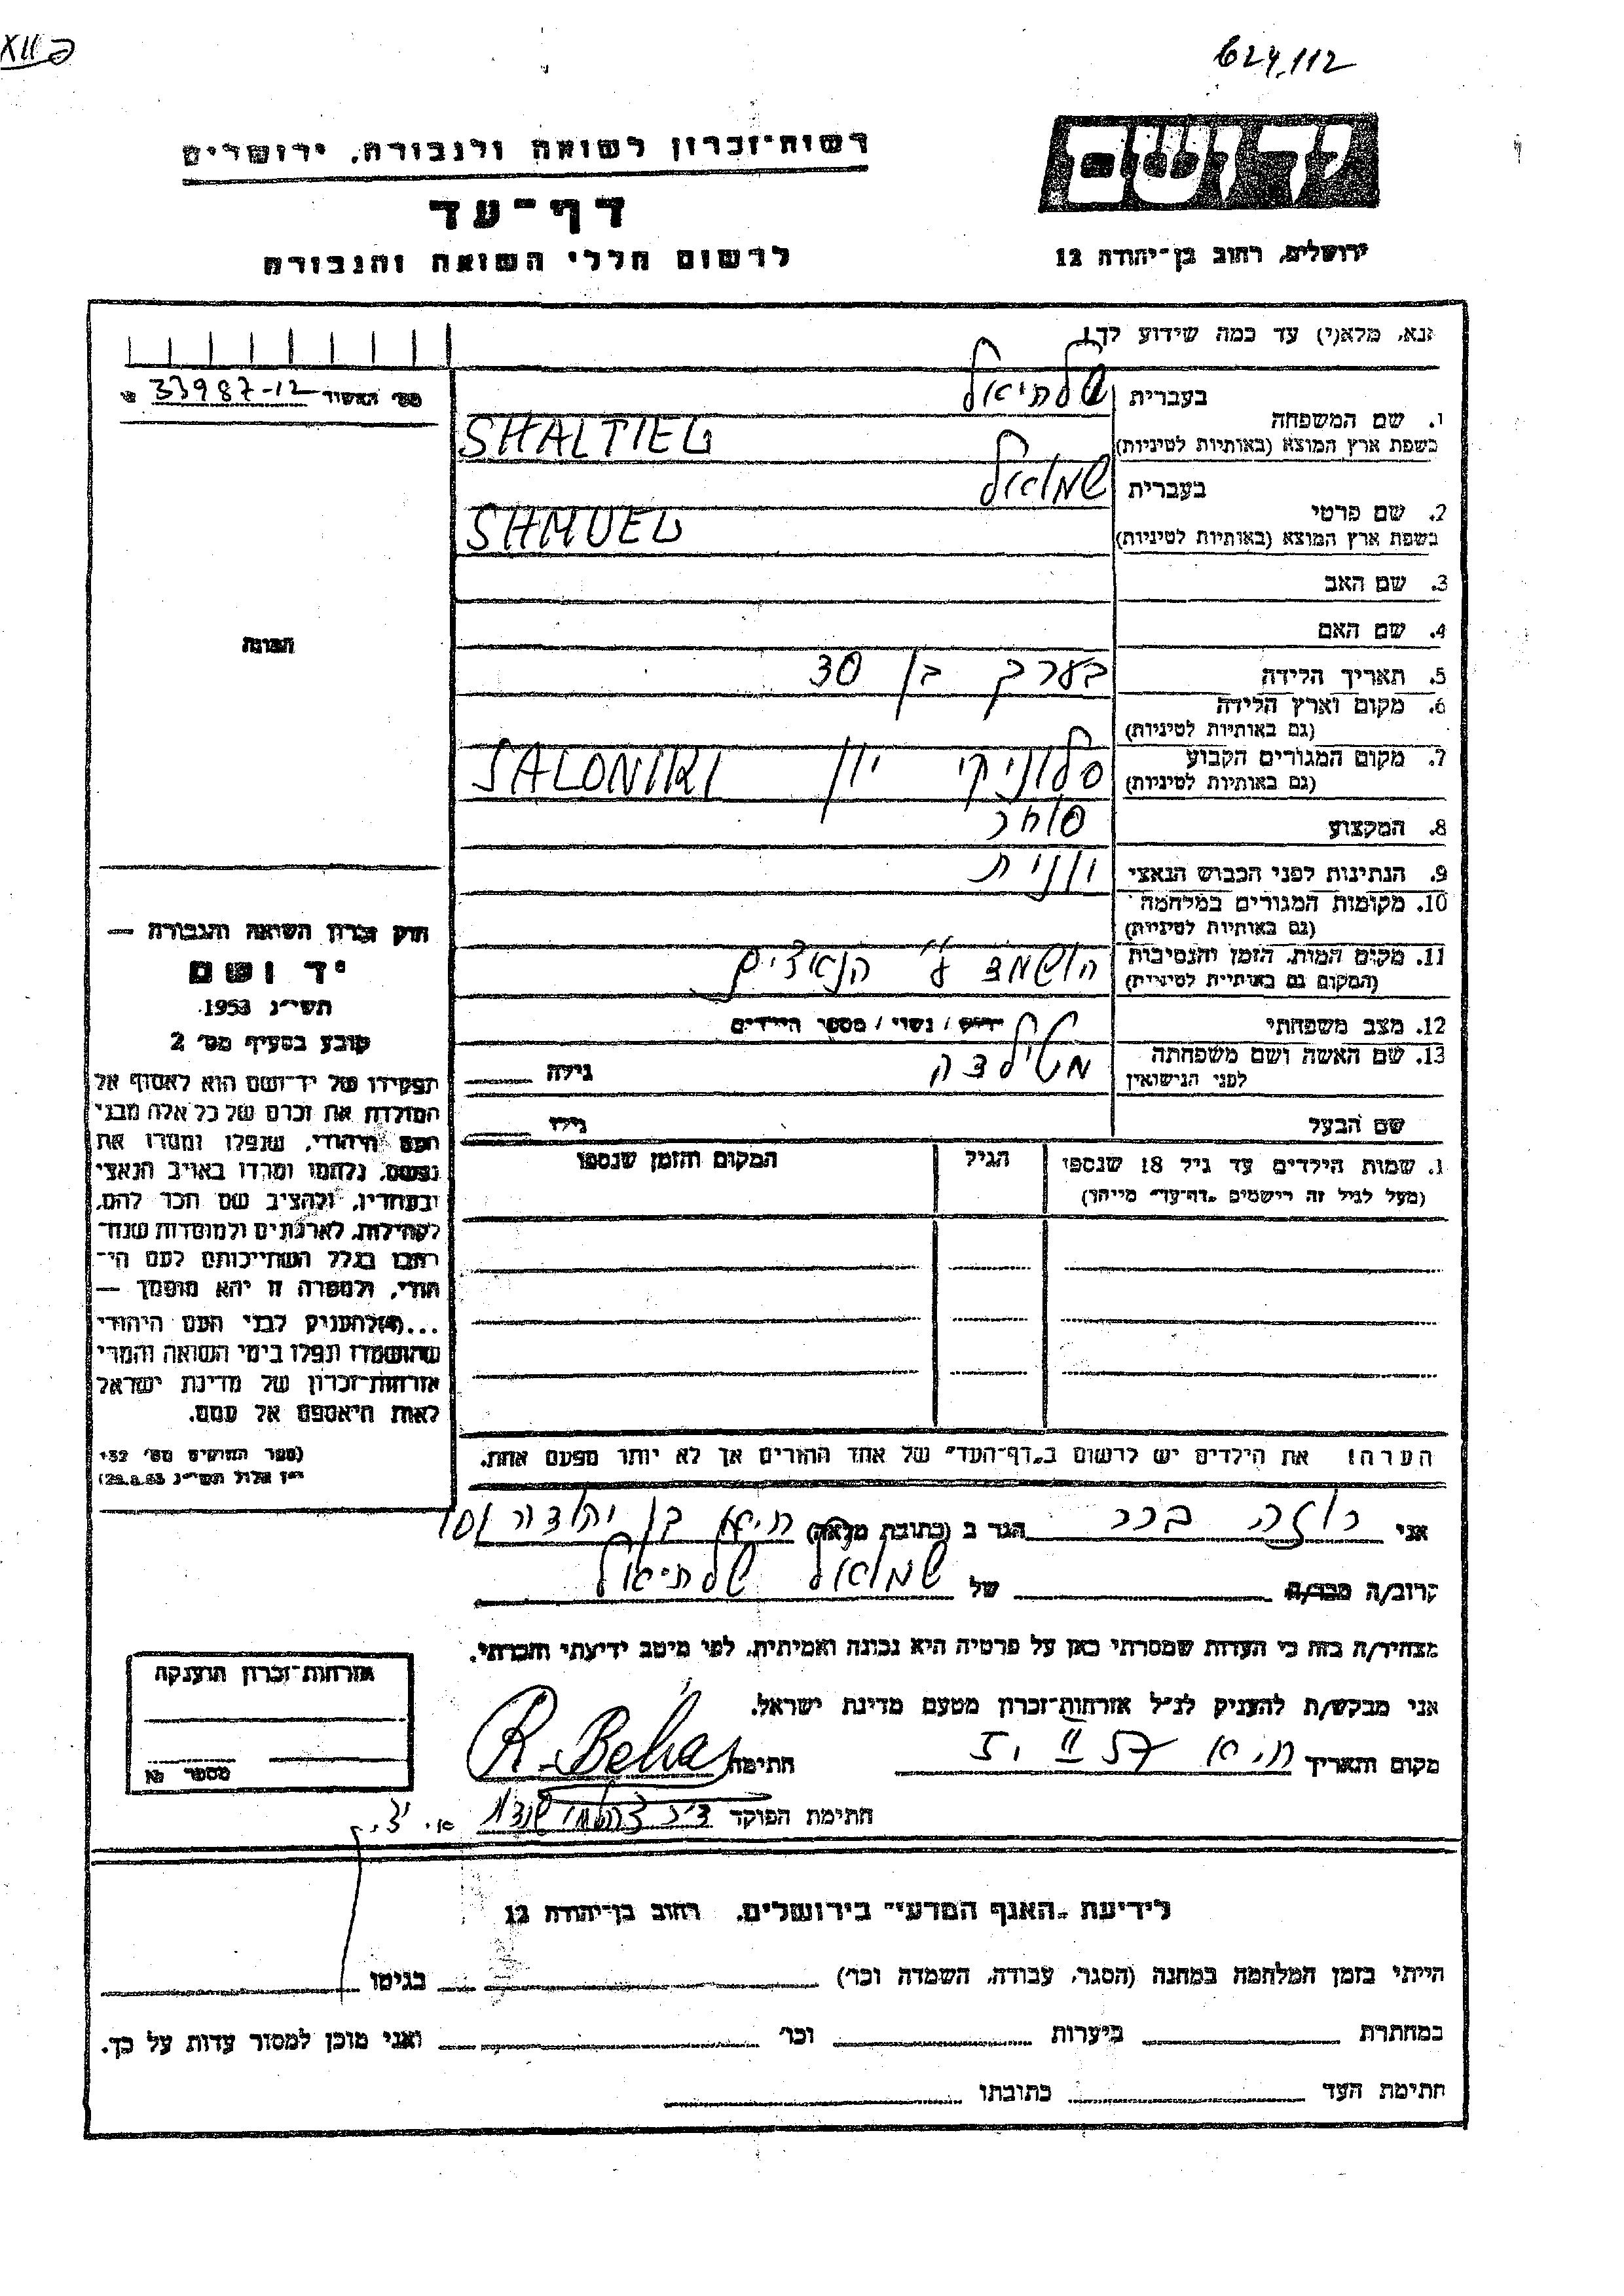 624,112
XII פ
יד ושם
רשות־זכרון לשואה ולגבורה, ירושלים
דף־עד
לרשום חללי השואה והגבורה
ירושלים, רחוב בן־יהודה 12
נא, מלא(י) עד כמה שידוע לך!
מס׳ האשור 33987-12
בעברית שלתיאל
1. שם המשפחה
בשפת ארץ המוצא (באותיות לטיניות) SHALTIEL
בעברית שמואל
2. שם פרטי
בשפת ארץ המוצא (באותיות לטיניות) SHMUEL
3. שם האב
4. שם האם
התמונה
5. תאריך הלידה בערך בן 30
6. מקום וארץ הלידה
(גם באותיות לטיניות)
7. מקום המגורים הקבוע סלוניקי יון SALONIKI
(גם באותיות לטיניות)
8. המקצוע סוחר
9. הנתינות לפני הכבוש הנאצי יונית
10. מקומות המגורים במלחמה
(גם באותיות לטיניות)
11. מקום המות, הזמן והנסיבות הושמד ע״י הנאצים
(המקום גם באותיות לטיניות)
12. מצב משפחתי רווק / נשוי / מספר הילדים
13. שם האשה ושם משפחתה מטילדה גילה
לפני הנישואין
שם הבעל גילו
1. שמות הילדים עד גיל 18 שנספו הגיל המקום והזמן שנספו
(מעל לגיל זה רישמים „דף־עד״ מייחד)
חוק זכרון השואה והגבורה —
יד ושם
תשי״ג 1953
קובע בסעיף מס׳ 2
תפקידו של יד־ושם הוא לאסוף אל
המולדת את זכרם של כל אלה מבני
העם היהודי, שנפלו ומסרו את
נפשם, נלחמו ומרדו באויב הנאצי
ובעוזריו, ולהציב שם וזכר להם,
לקהילות, לארגונים ולמוסדות שנח־
רבו בגלל השתייכותם לעם הי־
הודי, ולמטרה זו יהא מוסמך —
...(4)להעניק לבני העם היהודי
שהושמדו ונפלו בימי השואה והמרי
אזרחות־זכרון של מדינת ישראל
לאות היאספם אל עמם.
(ספר החוקים מס׳ 132
י״ז אלול תשי״ג 28.8.53)
הערה! את הילדים יש לרשום ב„דף־העד״ של אחד ההורים אך לא יותר מפעם אחת.
אני רוזה בכר הגר ב (כתובת מלאה) ת״א בן יהודה 105
קרוב/ה מכר/ה של שמואל שלתיאל
מצהיר/ה בזה כי העדות שמסרתי כאן על פרטיה היא נכונה ואמיתית, לפי מיטב ידיעתי והכרתי.
אני מבקש/ת להעניק לנ״ל אזרחות־זכרון מטעם מדינת ישראל.
מקום ותאריך ת״א 57 II 5. חתימה R. Behar
חתימת הפוקד
אזרחות־זכרון הוענקה
מספר
לידיעת „האגף המדעי״ בירושלים, רחוב בן־יהודה 12
הייתי בזמן המלחמה במחנה (הסגר, עבודה, השמדה וכו׳) בגיטו
במחתרת ביערות וכו׳ ואני מוכן למסור עדות על כך.
חתימת העד כתובתו